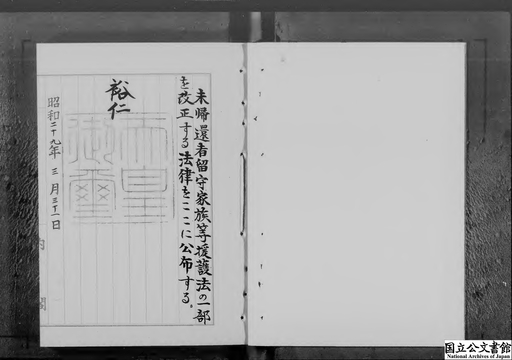 未帰還者留守家族等援護法の一部
を改正する法律をここに公布する。
裕仁
天皇
御璽
昭和二十九年三月三十一日
内閣
国立公文書館
National Archives of Japan